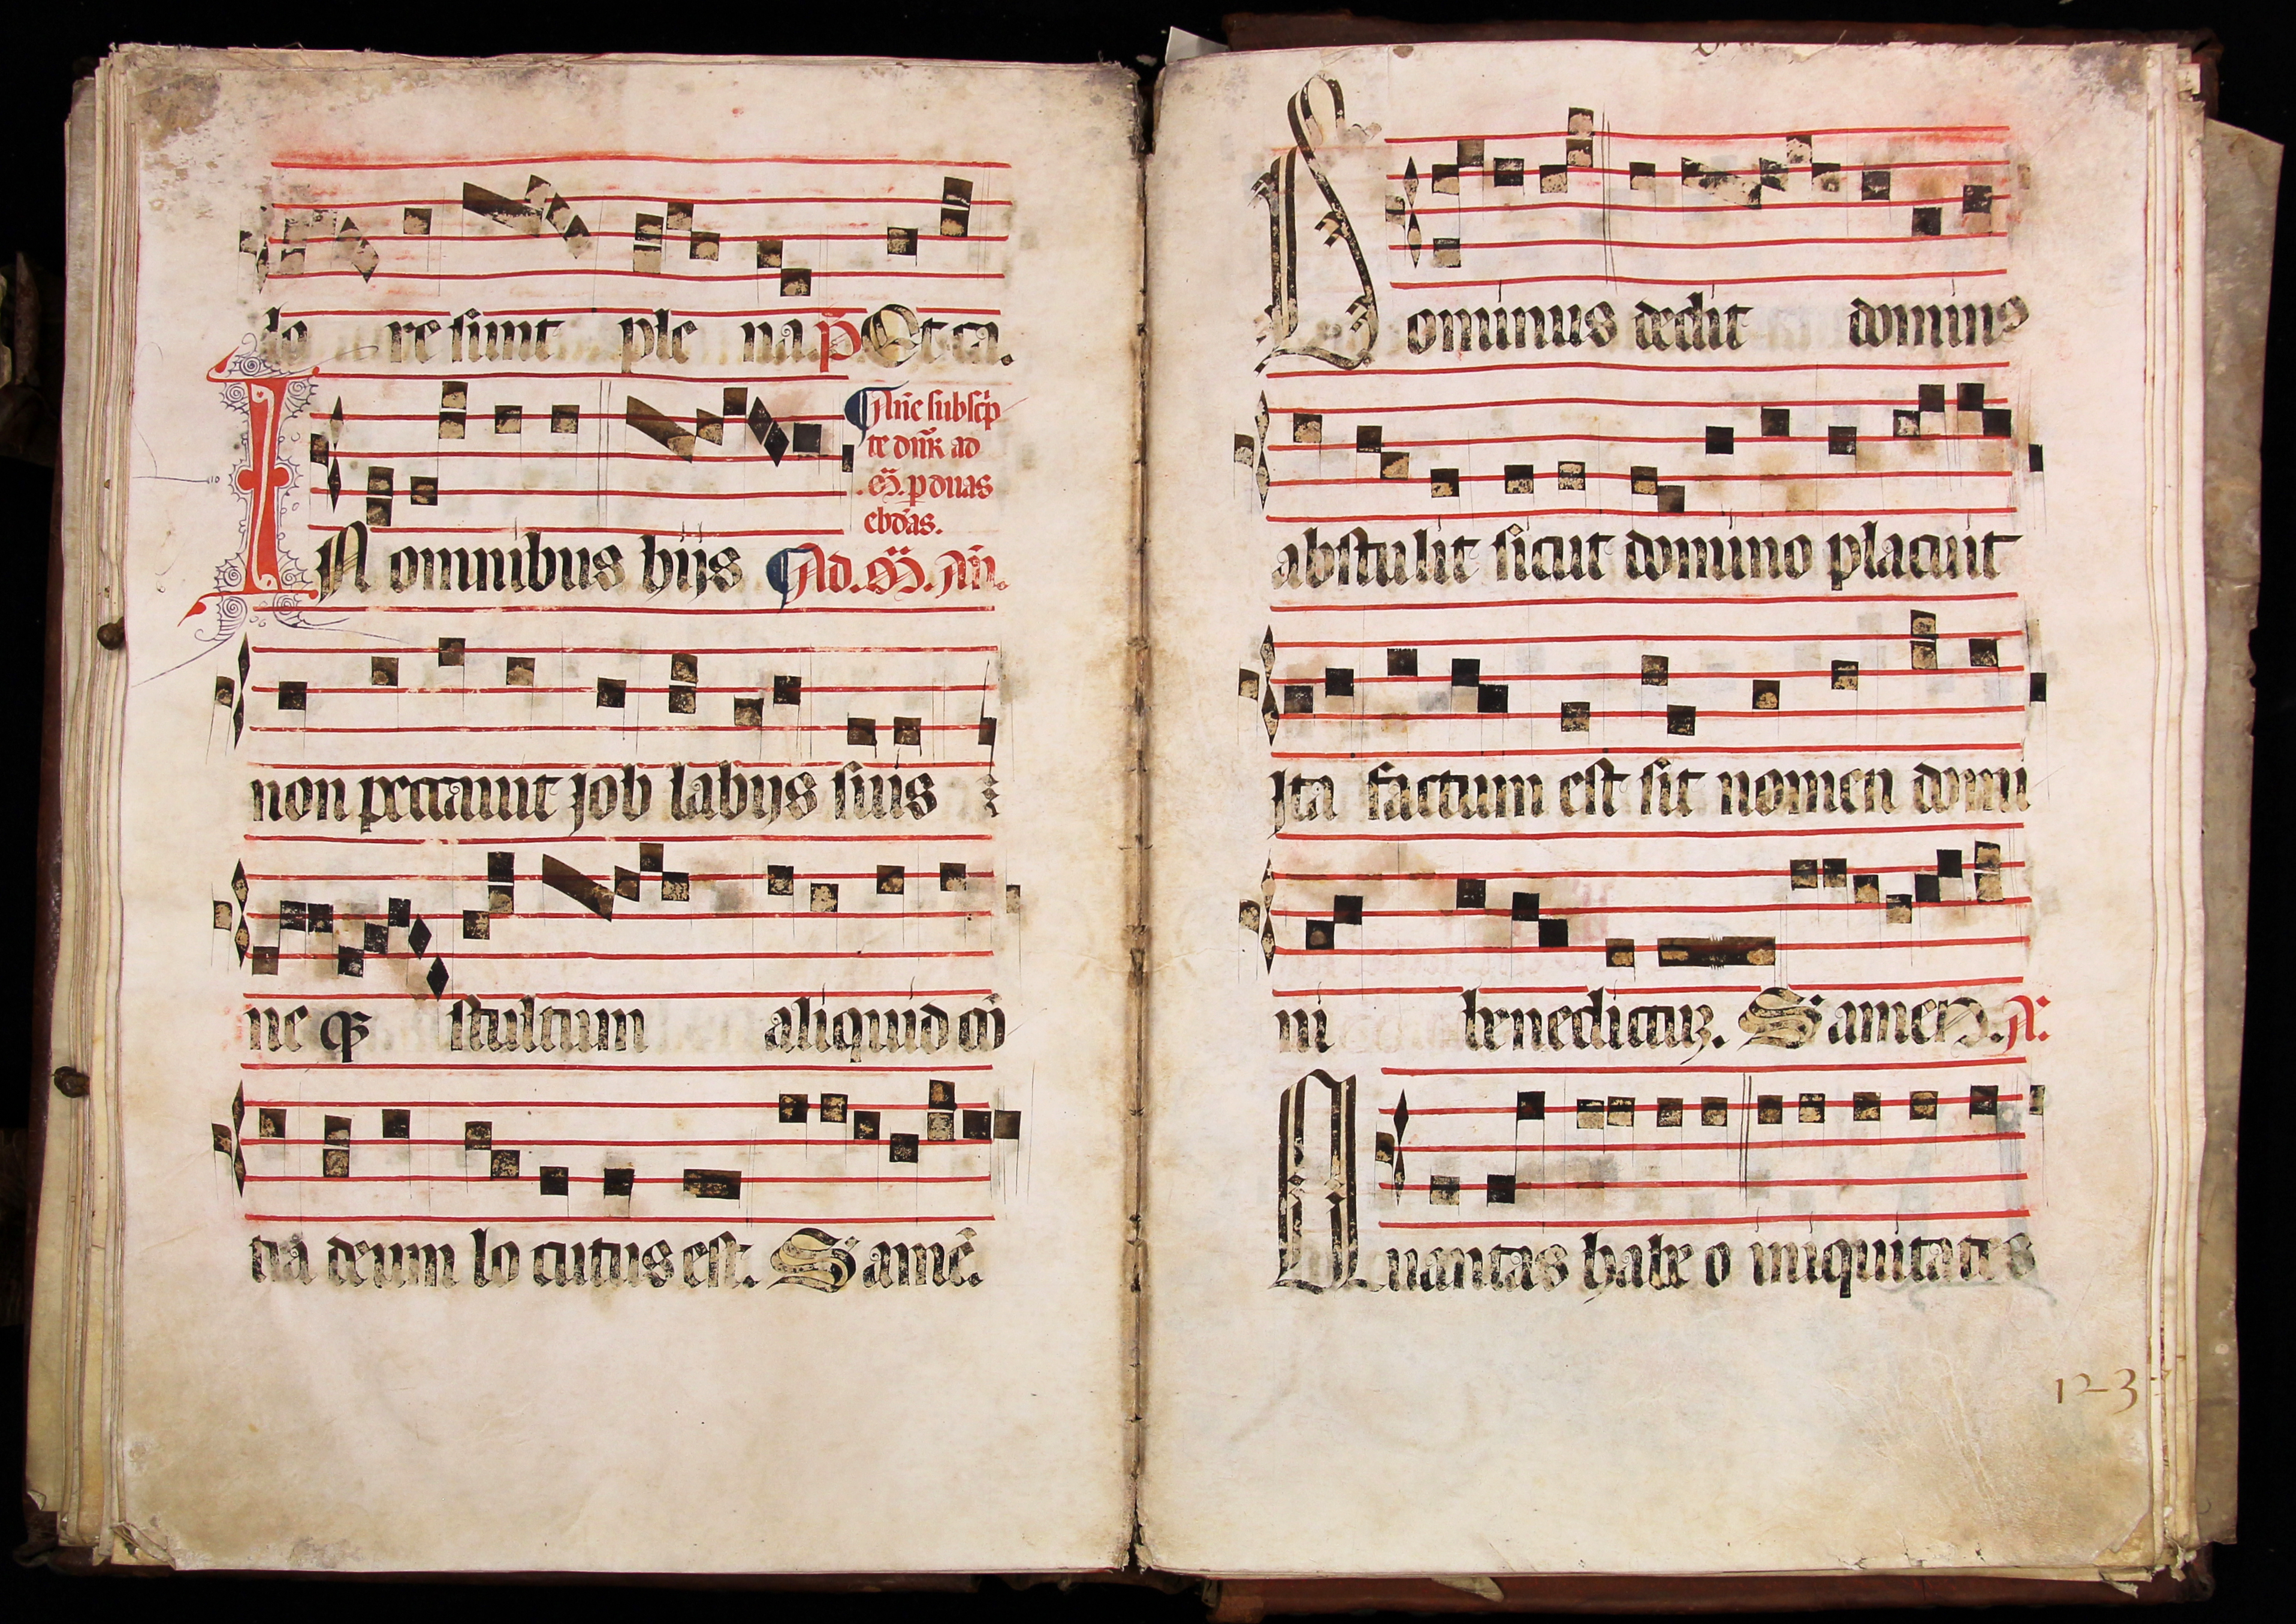 lo re sunt ple na. p̄ Et ca.
¶ Añe subscͥp
te dn̄r ad
m̄. p duas
ebdas.
IN omnibus hijs ¶ Ad. m̄. An̄.
non peccauit job labijs suis
ne qȝ stultum aliquid cō
tra deum lo cutus est. S amē.
Dominus dedit dominus
abstulit sicut domino placuit
jta factum est sit nomen domi
ni benedictuȝ. S amen. A:
Quantas habe o iniquitates
123